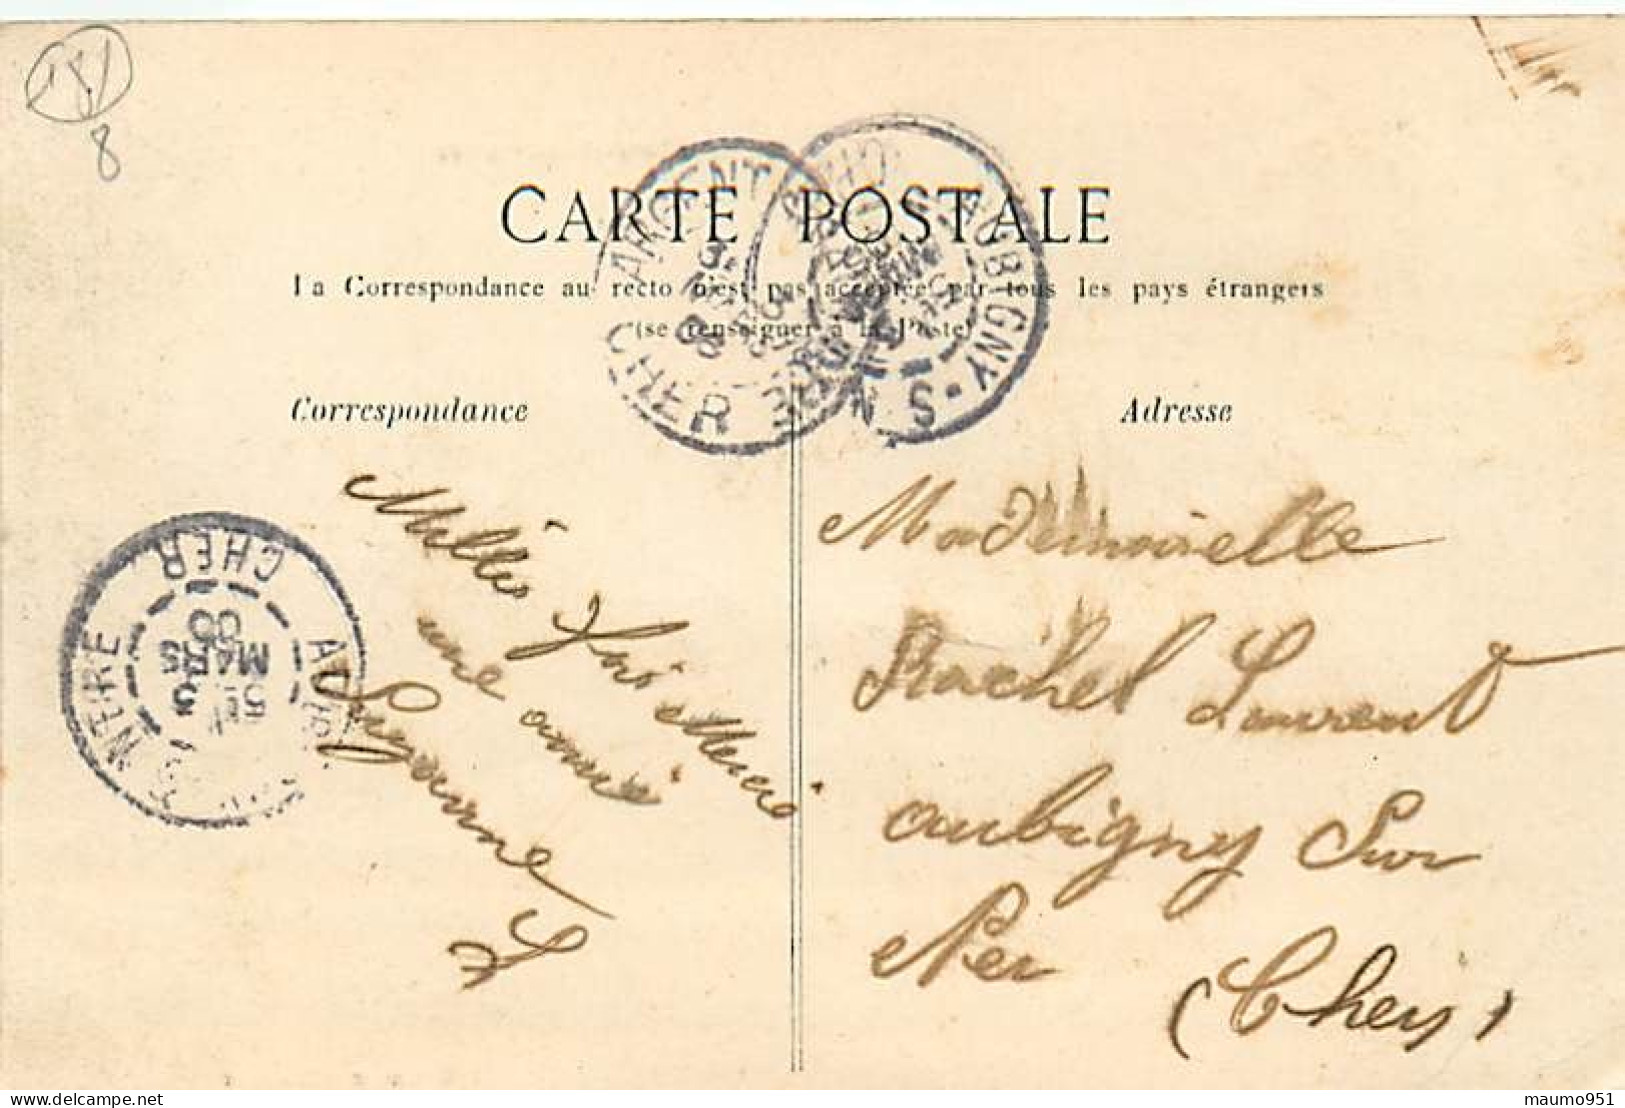 18
8
CARTE POSTALE
La Correspondance au recto n'est pas acceptée par tous les pays étrangers
(se renseigner à la Poste)
Correspondance
Adresse
ARGENT
CHER
AUBIGNY-S-NERE
CHER
Mille fois Merci
une amie
Suzanne
L
Mademoiselle
Rachel Laurent
aubigny Sur
Ner
(Cher)
delcampe.net
maumo951